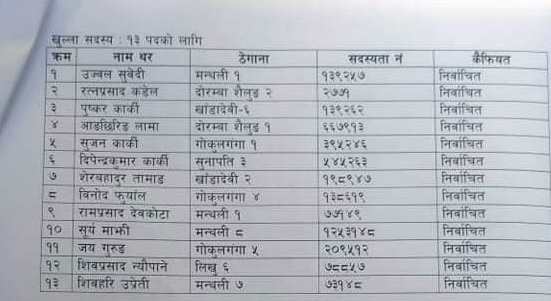 खुल्ला सदस्य : १३ पदको लागि
क्रम नाम थर ठेगाना सदस्यता नं कैफियत
१ उज्वल सुवेदी मन्थली १ १३९२५७ निर्वाचित
२ रत्नप्रसाद कडेल दोरम्बा शैलुङ २ २७७१ निर्वाचित
३ पुष्कर कार्की खांडादेवी-६ १३९२६२ निर्वाचित
४ आङछिरिङ लामा दोरम्बा शैलुङ १ ६६७९१३ निर्वाचित
५ सुजन कार्की गोकुलगंगा १ ३९५२४६ निर्वाचित
६ दिपेन्द्रकुमार कार्की सुनापति ३ ५४५२६३ निर्वाचित
७ शेरबहादुर तामाङ खाँडादेवी २ १९८९४७ निर्वाचित
८ विनोद फुयाँल गोकुलगंगा ४ १३८६१९ निर्वाचित
९ रामप्रसाद देवकोटा मन्थली १ ७७१४९ निर्वाचित
१० सुर्य माझी मन्थली ८ १२५३१४८ निर्वाचित
११ जय गुरुङ गोकुलगंगा ५ २०९५१२ निर्वाचित
१२ शिवप्रसाद न्यौपाने लिखु ६ ७८८५७ निर्वाचित
१३ शिवहरि उप्रेती मन्थली ७ ७३१४८ निर्वाचित